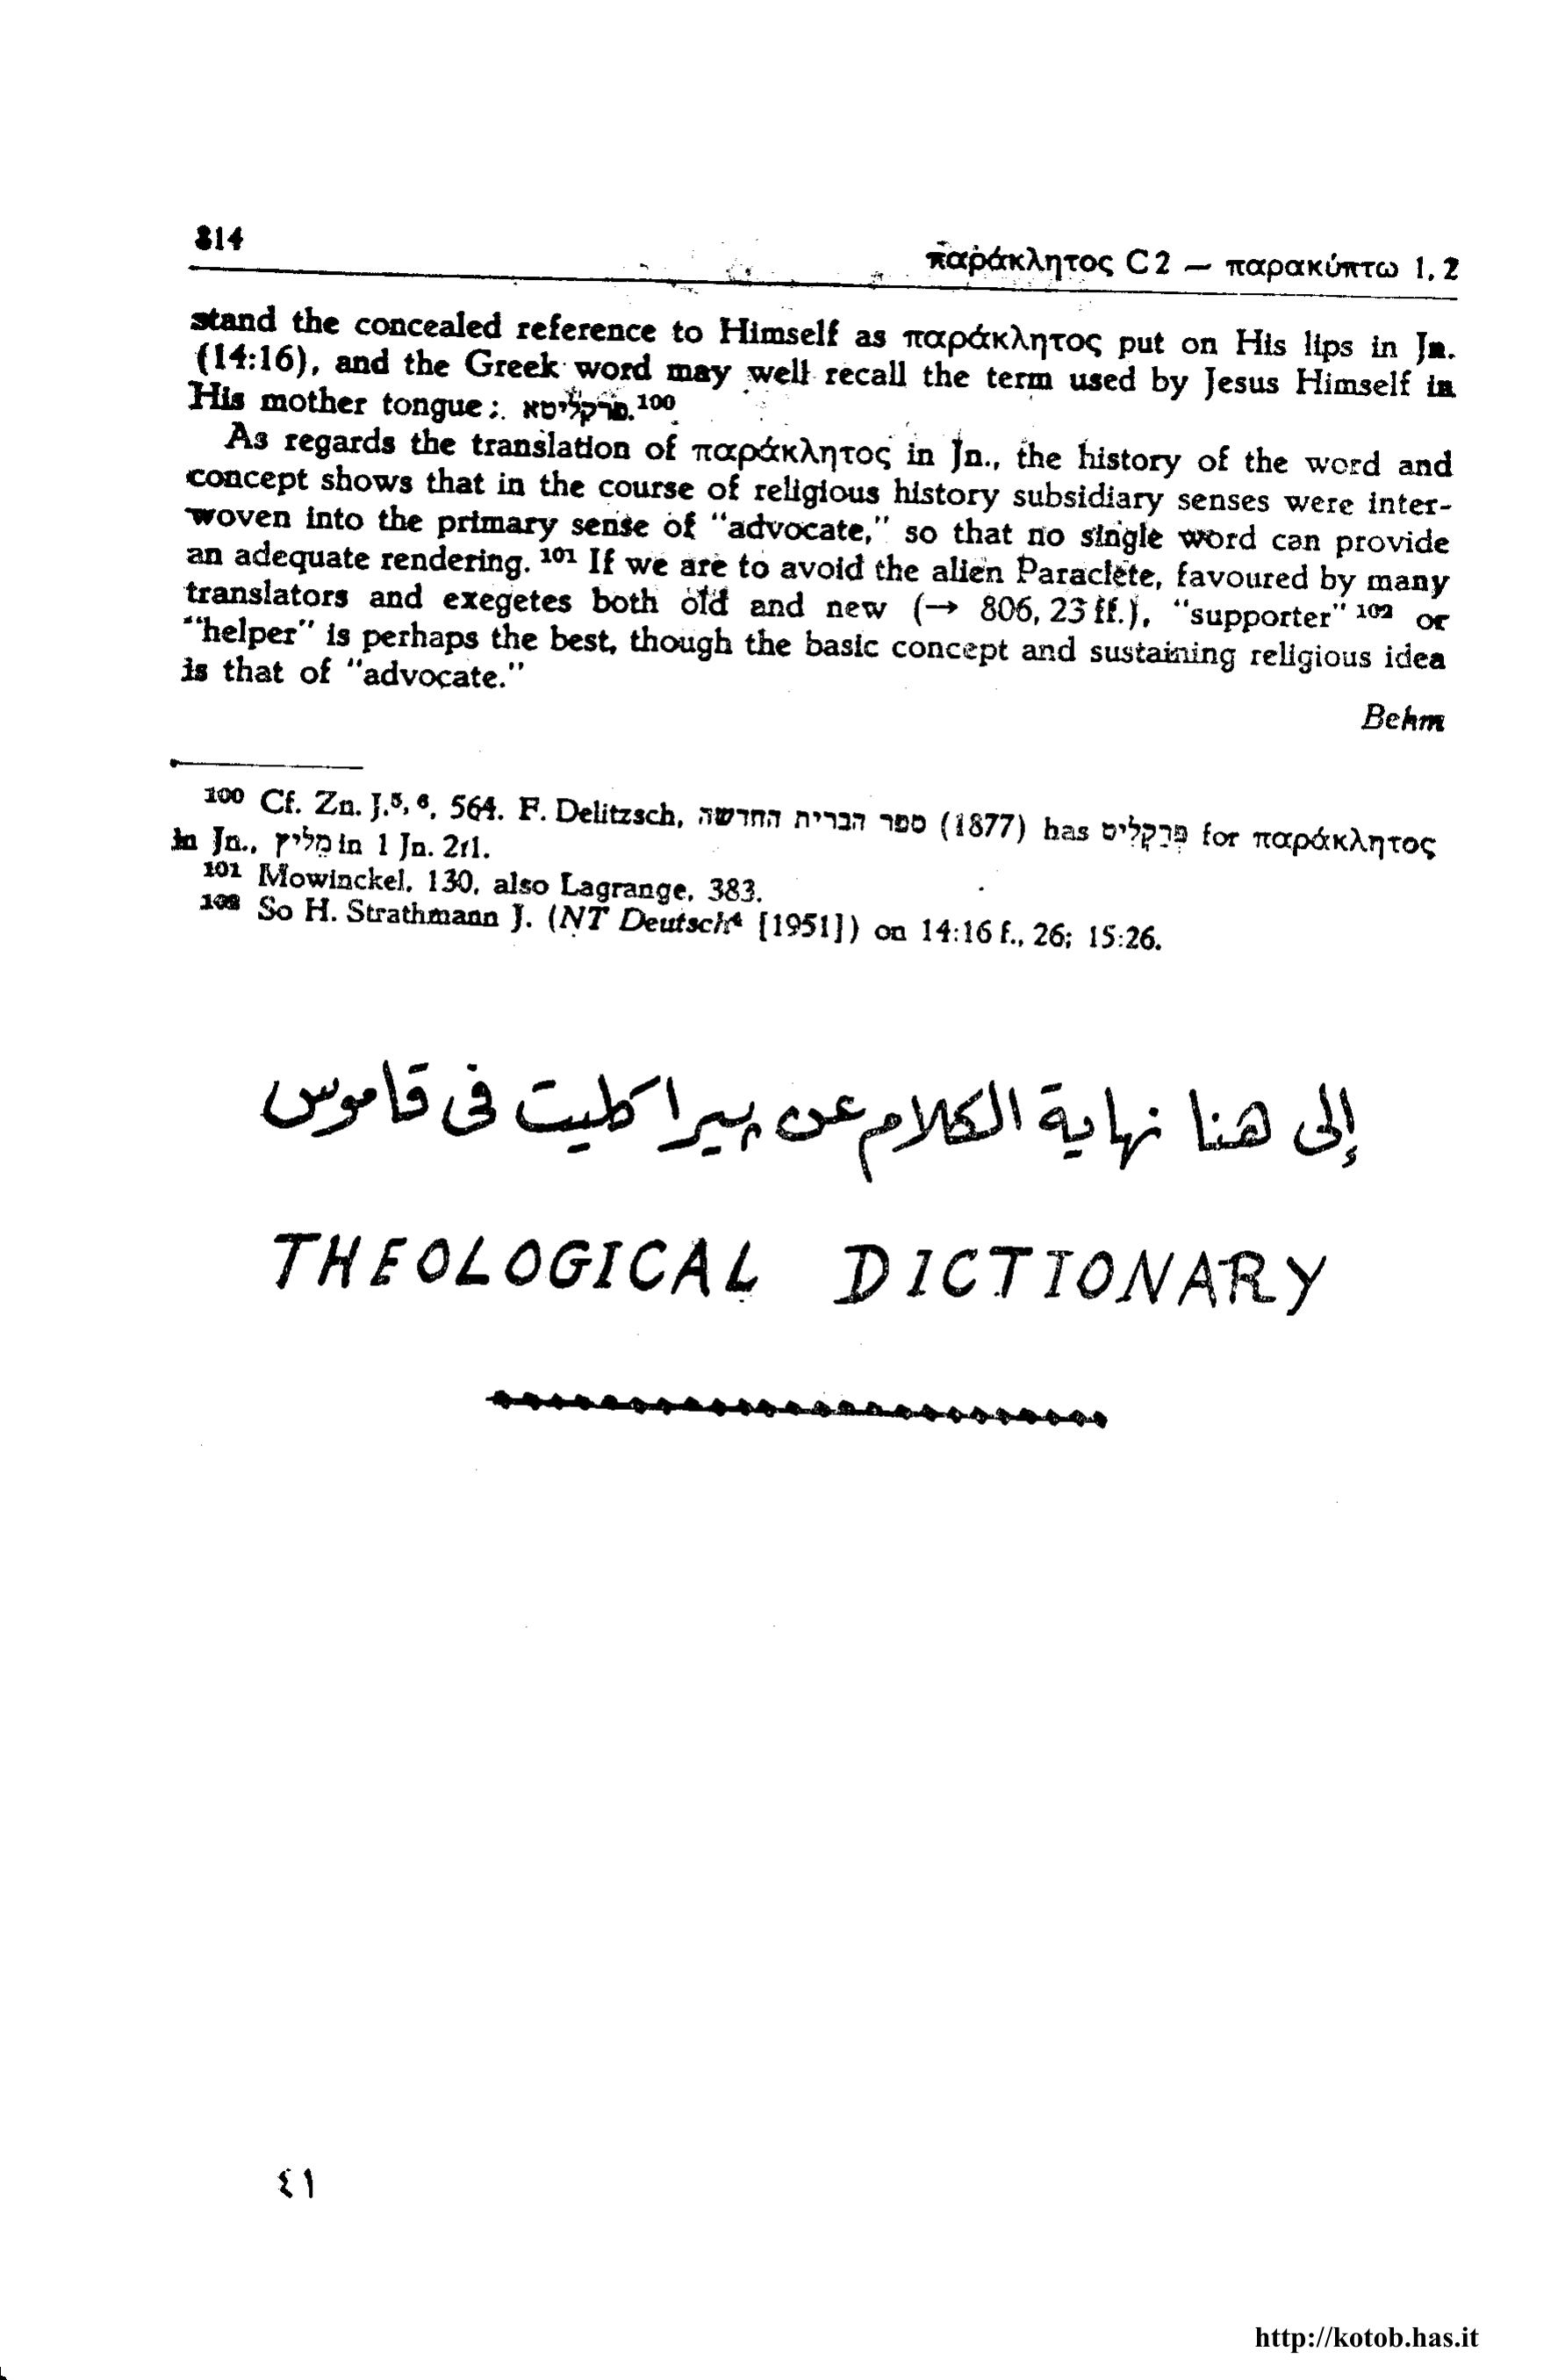 814
παράκλητος C 2 — παρακύπτω 1, 2
stand the concealed reference to Himself as παράκλητος put on His lips in Jn.
(14:16), and the Greek word may well recall the term used by Jesus Himself in
His mother tongue: פרקליטא.¹⁰⁰
As regards the translation of παράκλητος in Jn., the history of the word and
concept shows that in the course of religious history subsidiary senses were inter-
woven into the primary sense of "advocate," so that no single word can provide
an adequate rendering. ¹⁰¹ If we are to avoid the alien Paraclete, favoured by many
translators and exegetes both old and new (→ 806, 23 ff.), "supporter" ¹⁰² or
"helper" is perhaps the best, though the basic concept and sustaining religious idea
is that of "advocate."
Behm
¹⁰⁰ Cf. Zn. J.⁵, ⁶, 564. F. Delitzsch, ספר הברית החדשה (1877) has פְּרַקְלִיט for παράκλητος
in Jn., מֵלִיץ in 1 Jn. 2:1.
¹⁰¹ Mowinckel, 130, also Lagrange, 383.
¹⁰² So H. Strathmann J. (NT Deutsch⁴ [1951]) on 14:16 f., 26; 15:26.
إلى هنا نهاية الكلام عن پيراكليت فى قاموس
THEOLOGICAL DICTIONARY
٤١
http://kotob.has.it